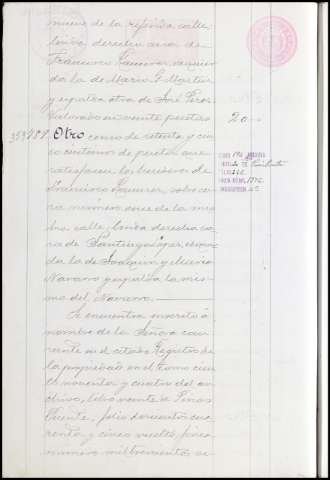 mero de la referida calle;
linda derecha casa de
Francisco Ramirez, izquier
da la de Maria G. Martin
y espalda otra de José Perez
valorado en veinte pesetas 20
Otro censo de setenta y cin
co centimos de peseta que
satisfacen los herederos de
Francisco Ramirez, sobre ca
sa número once de la mis
ma calle; linda derecha ca
sa de Santiago Lopez, izquier
da la de Joaquin y Maria
Navarro y espalda la mis
ma del Navarro.
Se encuentra inscrito á
nombre de la Señora cau
sante en el citado Registro de
la propiedad en el tomo cien
to noventa y cuatro del ar
chivo, libro veinte de Pinos
Puente, folio doscientos cua
renta y cinco vuelto, finca
número mil trescientos se